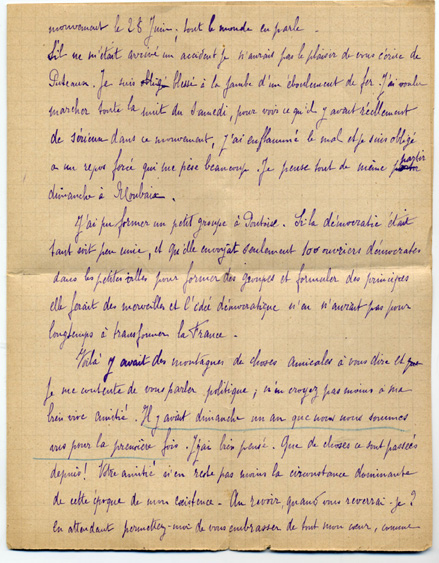 mouvement le 28 Juin ; tout le monde en parle.
S'il ne m'était arrivé un accident je n'aurais pas le plaisir de vous écrire de
Puteaux. Je suis blessé à la jambe d'un éboulement de fer. J'ai voulu
marcher toute la nuit du Samedi, pour voir ce qu'il y avait réellement
de sérieux dans ce mouvement, j'ai enflammé le mal et je suis obligé
à un repos forcé qui me pèse beaucoup. Je pense tout de même partir
dimanche à Roubaix.
J'ai pu former un petit groupe à Pontoise. Si la démocratie était
tant soit peu unie, et qu'elle envoyât seulement 100 ouvriers démocrates
dans les petites villes pour former des groupes et formuler des principes
elle ferait des merveilles et l'idée démocratique n'en n'aurait pas pour
longtemps à transformer la France.
Voilà y avait des montagnes de choses amicales à vous dire et
je me contente de vous parler politique ; n'en croyez pas moins à ma
bien vive amitié. Il y avait dimanche un an que nous nous sommes
vus pour la première fois. J'y ai bien pensé. Que de choses se sont passées
depuis ! Votre amitié n'en reste pas moins la circonstance dominante
de cette époque de mon existence. Au revoir, quand vous reverrai-je ?
En attendant permettez-moi de vous embrasser de tout mon cœur, comme